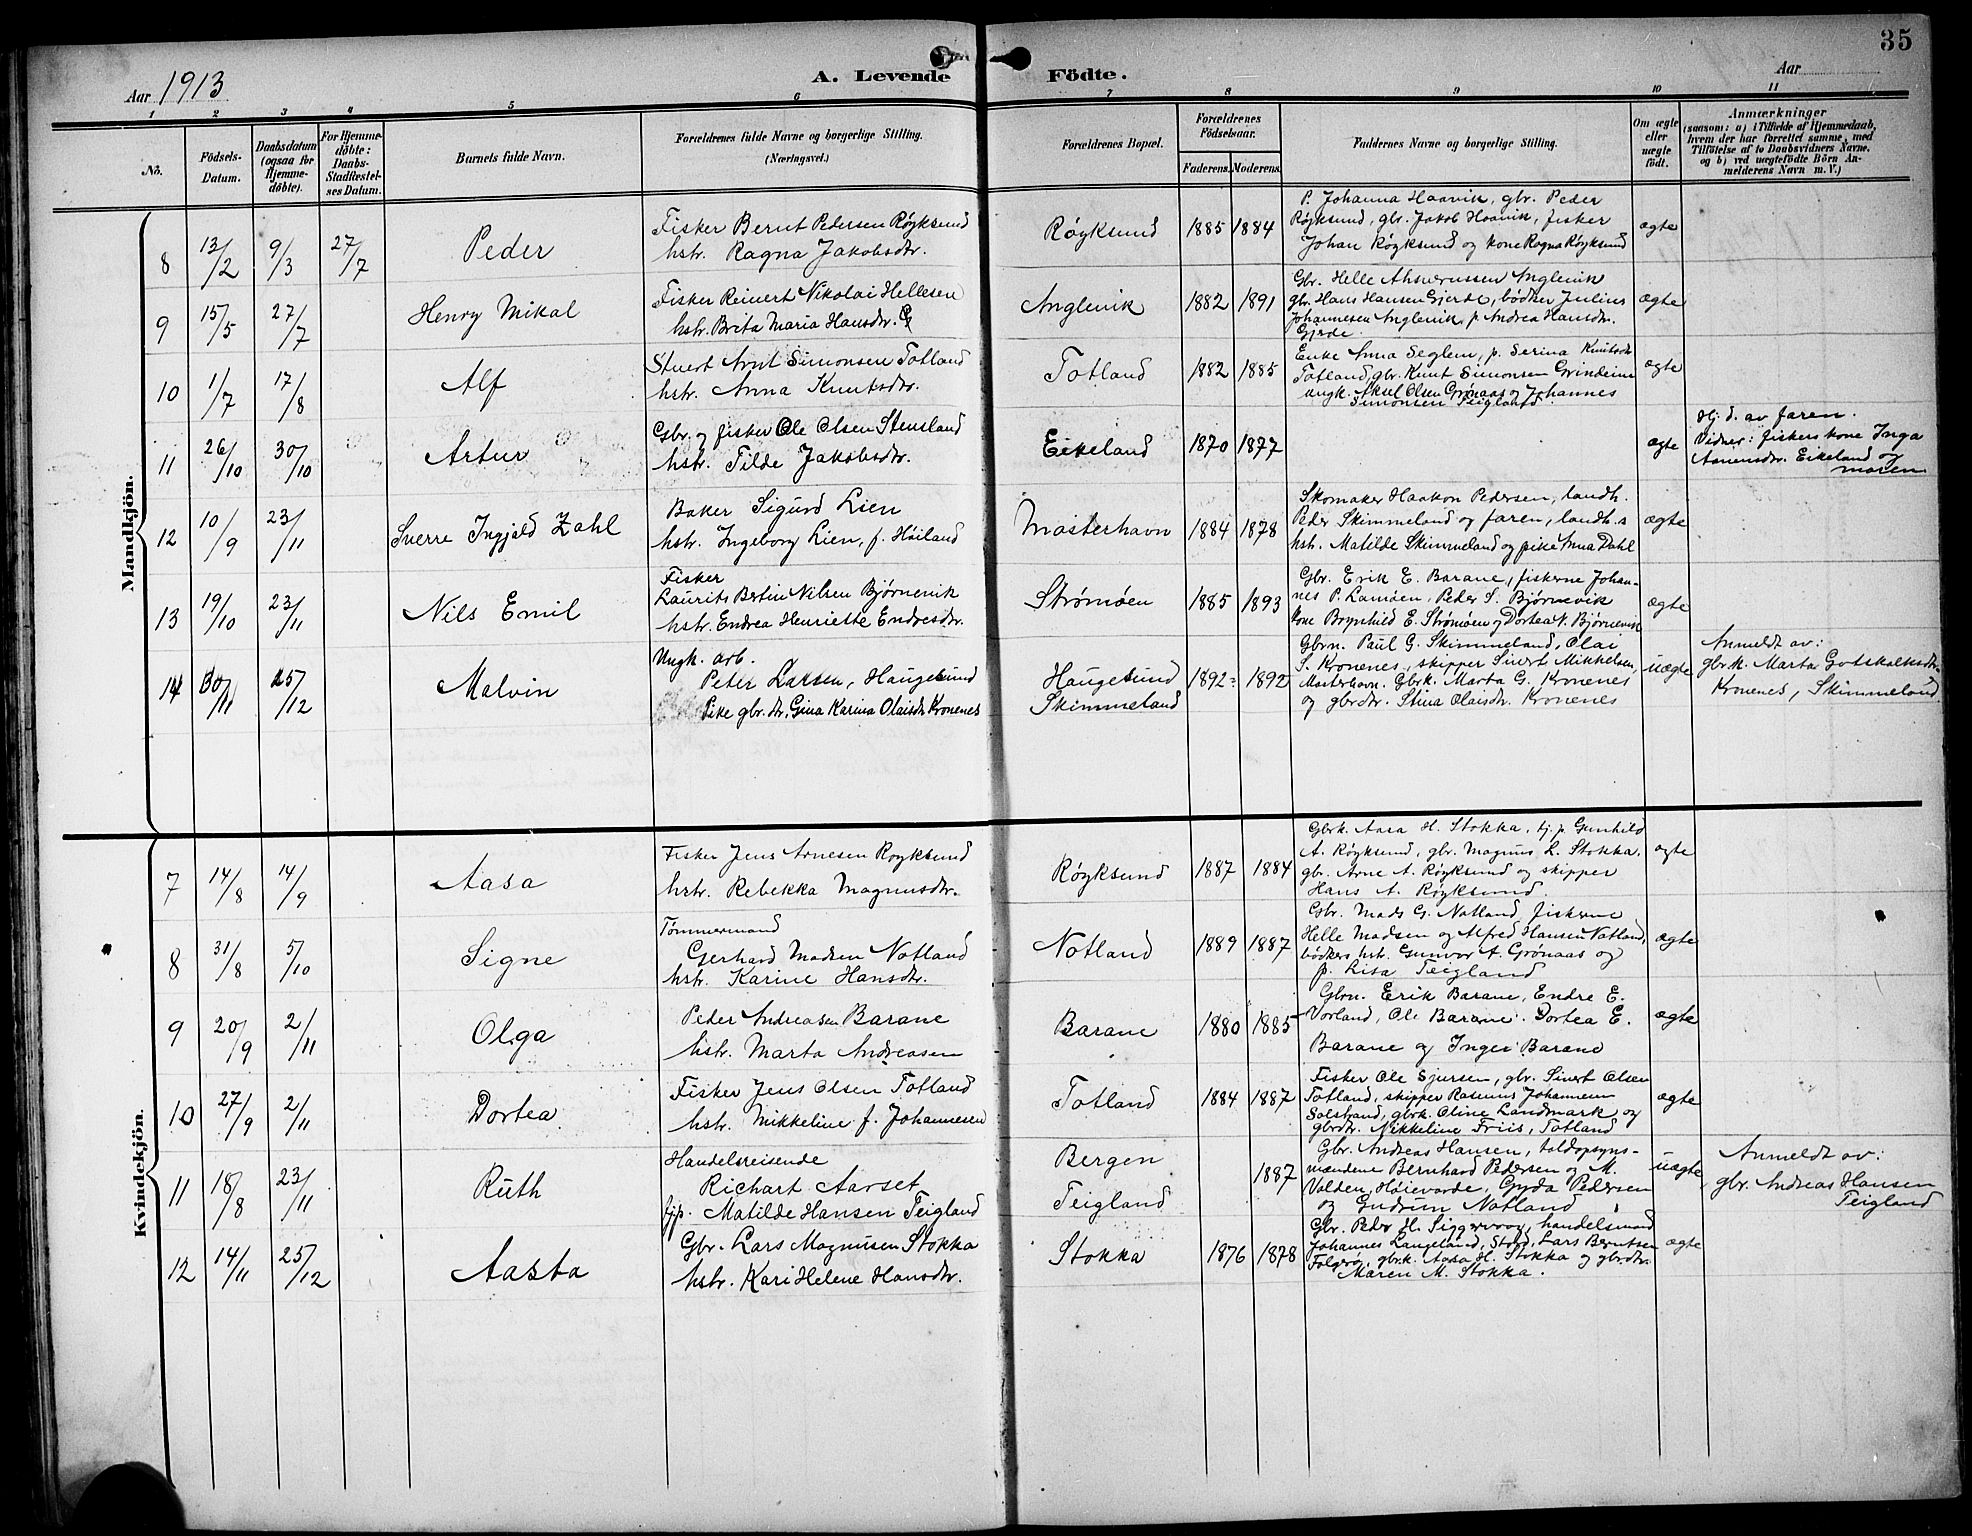 35
Aar 1913
A. Levende Födte.
Aar
1 2 3 4 5 6 7 8 9 10 11
No.
Födsels-Datum.
Daabsdatum (ogsaa for Hjemme-döbte).
For Hjemme-döbte: Daabs-Stadfæstel-ses Datum.
Barnets fulde Navn.
Forældrenes fulde Navne og borgerlige Stilling. (Næringsvei.)
Forældrenes Bopæl.
Forældrenes Födselsaar.
Faderens. Moderens.
Faddernes Navne og borgerlige Stilling.
Om ægte eller uægte födt.
Anmærkninger
(saasom: a) i Tilfælde af Hjemmedaab, hvem der har forrettet samme, med Tilföielse af to Daabsvidners Navne, og b) ved uægtefödte Börn An-melderens Navn m. V.)
Mandkjön.
8 13/2 9/3 27/7 Peder
Fisker Bernt Pedersen Røyksund
hstr. Ragna Jakobsdtr.
Røyksund 1885 1884
P. Johanna Haavik, gbr. Peder
Røyksund, gbr. Jakob Haavik, fisker
Johan Røyksund og kone Ragna Røyksund
ægte
9 15/5 27/7 Henry Mikal
Fisker Reinert Nikolai Hellesen
hstr. Brita Maria Hansdtr. G
Anglevik 1882 1891
Gbr. Helle Ahsverussen Anglevik
gbr. Hans Hansen Gjerde, bødker Julius
Johannesen Anglevik, p. Andrea Hansdtr.
Gjerde.
ægte
10 1/7 17/8 Alf
Stuert Arnt Simonsen Totland
hstr. Anna Knutsdtr.
Totland 1882 1885
Enke Anna Seglem, p. Serina Knutsdtr
Totland, gbr. Knut Simonsen Grindeim
ungk. Aksel Olsen Grønaas og Johannes
Simonsen Teigland.
ægte
11 26/10 30/10 Artur
Gbr. og fisker Ole Olsen Stensland
hstr. Tilde Jakobsdtr.
Eikeland 1870 1877
ægte
Hj. d. av faren.
Vidner: fiskerskone Inga
Eikeland og
moren
12 10/9 23/11 Sverre Ingjald Zahl
Baker Sigurd Lien
hstr. Ingeborg Lien, f. Høiland
Mosterhavn 1884 1878
Skomaker Haakon Pedersen, landh.
Peder Skimmeland og faren, landh.s
hst. Matilde Skimmeland og pike Anna Dahl
ægte
13 19/10 23/11 Nils Emil
Fisker
Laurits Bertin Nilsen Bjørnevik
hstr. Endrea Henriette Endresdtr.
Strømøen 1885 1893
Gbr. Erik E. Barane, fiskerne Johan-
nes P. Lamøen, Peder S. Bjørnevik
kone Brynhild E. Strømøen og Dortea N. Bjørnevik
ægte
14 30/11 25/12 Malvin
Ungk. arb.
Peter Larsen, Haugesund
Pike gbr. dtr. Gina Karina Olaisdtr Kronenes
Haugesund
Skimmeland
1892 1892
Gbrn. Paul G. Skimmeland, Olai
S. Kronenes, skipper Sivert Mikkelsen,
Mosterhavn. Gbrk. Marta G. Kronenes
og gbrdtr. Stina Olaisdtr. Kronenes
uægte
Anmeldt av:
gbr.k. Marta Gotskalksdtr.
Kronenes, Skimmeland
Kvindekjön.
7 14/8 14/9 Aasa
Fisker Jens Arnesen Røyksund
hstr. Rebekka Magnusdtr.
Røyksund 1887 1884
Gbrk. Aasa H. Stokka, tj. p. Gunhild
A. Røyksund, gbr. Magnus L. Stokka,
gbr. Arne A. Røyksund og skipper
Hans A. Røyksund
ægte
8 31/8 5/10 Signe
Tømmermand
Gerhard Madsen Notland
hstr. Karine Hansdtr.
Notland 1889 1887
Gbr. Mads G. Notland, fiskerne
Helle Madsen og Alfred Hansen Notland,
bødkers hst. Gunvor A. Grønaas og
p. Lisa Teigland
ægte
9 20/9 2/11 Olga
Peder Andreasen Barane
hstr. Marta Andreasen
Barane 1880 1885
Gbrn. Erik Barane, Endre E.
Vorland, Ole Barane. Dortea E.
Barane og Inger Barane
ægte
10 27/9 2/11 Dortea
Fisker Jens Olsen Totland
hstr. Mikkeline f. Johannesen
Totland 1884 1887
Fisker Ole Sjursen, gbr. Sivert Olsen
Totland, skipper Rasmus Johannesen
Solstrand, gbrk. Oline Landmark og
gbrdtr. Mikkeline Friis, Totland
ægte
11 18/8 23/11 Ruth
Handelsreisende
Richart Aarset
tjp. Matilde Hansen Teigland
Bergen
Teigland
1887
Gbr. Andreas Hansen, toldopsyns-
mændene Bernhard Pedersen og M.
Valden, Høievarde, Gyda Pedersen
og Gudrun Notland
uægte
Anmeldt av:
gbr. Andreas Hansen
Teigland
12 14/11 25/12 Aasta
Gbr. Lars Magnusen Stokka
hstr. Kari Helene Hansdtr.
Stokka 1876 1878
Gbr. Peder H. Siggervåg, handelsmand
Johannes Langeland, Stord, Lars Berntsen
Folgerø, gbrk. Aasa H. Stokka og gbrdtr.
Maren M. Stokka.
ægte